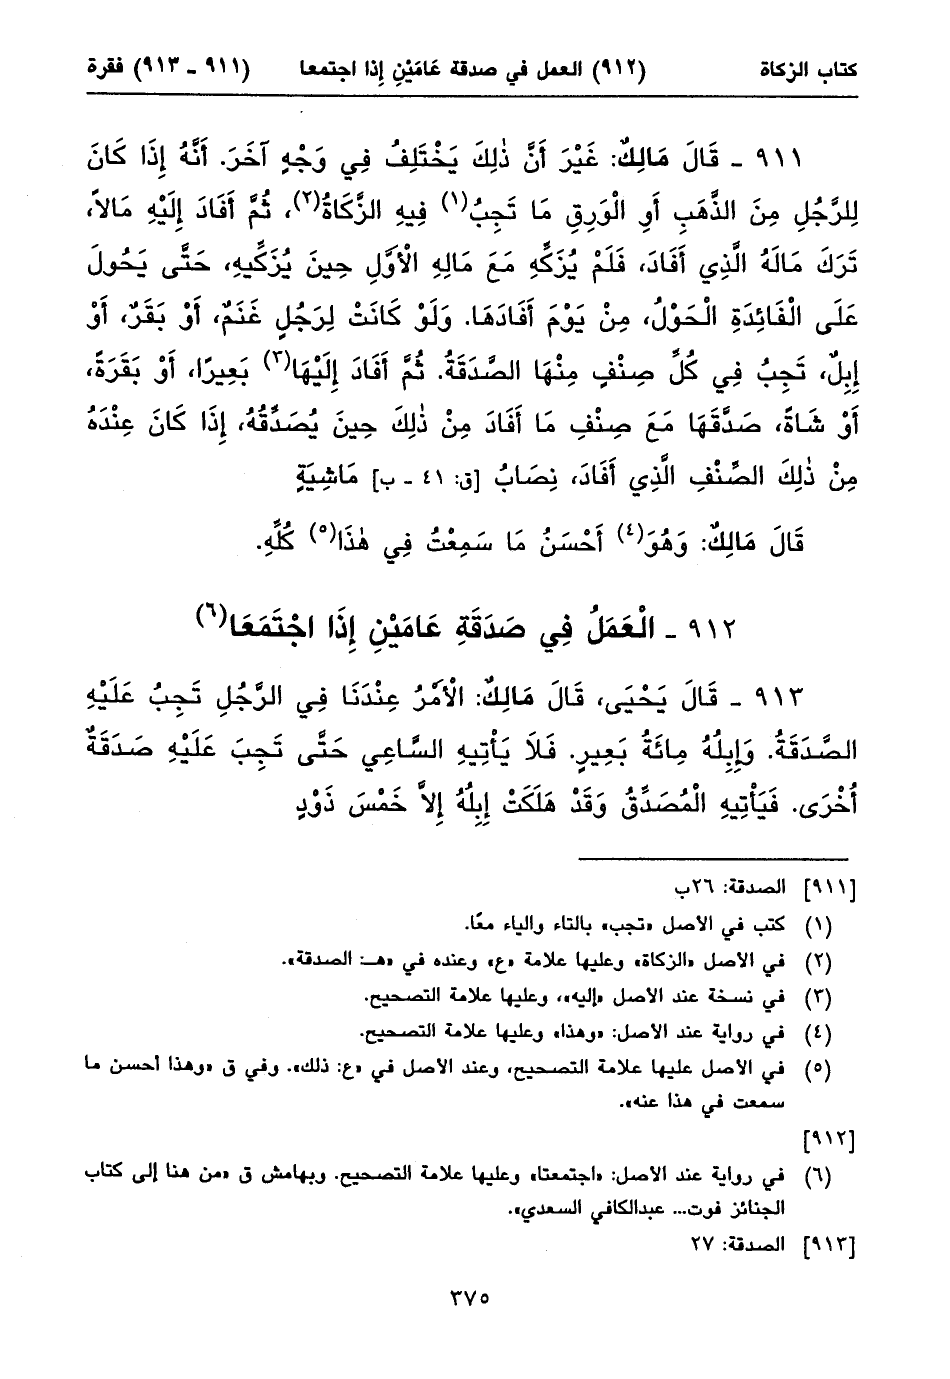 كتاب الزكاة (٩١٢) العمل في صدقة عَامَيْنِ إِذا اجتمعا (٩١١ - ٩١٣) فقرة
٩١١ - قَالَ مَالِكٌ: غَيْرَ أَنَّ ذٰلِكَ يَخْتَلِفُ فِي وَجْهٍ آخَرَ. أَنَّهُ إِذَا كَانَ
لِلرَّجُلِ مِنَ الذَّهَبِ أَوِ الْوَرِقِ مَا تَجِبُ(١) فِيهِ الزَّكَاةُ(٢)، ثُمَّ أَفَادَ إِلَيْهِ مَالاً،
تَرَكَ مَالَهُ الَّذِي أَفَادَ، فَلَمْ يُزَكِّهِ مَعَ مَالِهِ الْأَوَّلِ حِينَ يُزَكِّيهِ، حَتَّى يَحُولَ
عَلَى الْفَائِدَةِ الْحَوْلُ، مِنْ يَوْمَ أَفَادَهَا. وَلَوْ كَانَتْ لِرَجُلٍ غَنَمٌ، أَوْ بَقَرٌ، أَوْ
إِبِلٌ، تَجِبُ فِي كُلِّ صِنْفٍ مِنْهَا الصَّدَقَةُ. ثُمَّ أَفَادَ إِلَيْهَا(٣) بَعِيرًا، أَوْ بَقَرَةً،
أَوْ شَاةً، صَدَّقَهَا مَعَ صِنْفِ مَا أَفَادَ مِنْ ذٰلِكَ حِينَ يُصَدِّقُهُ، إِذَا كَانَ عِنْدَهُ
مِنْ ذٰلِكَ الصِّنْفِ الَّذِي أَفَادَ، نِصَابُ [ق: ٤١ - ب] مَاشِيَةٍ
قَالَ مَالِكٌ: وَهُوَ(٤) أَحْسَنُ مَا سَمِعْتُ فِي هٰذَا(٥) كُلِّهِ.
٩١٢ - الْعَمَلُ فِي صَدَقَةِ عَامَيْنِ إِذَا اجْتَمَعَا(٦)
٩١٣ - قَالَ يَحْيَى، قَالَ مَالِكٌ: الْأَمْرُ عِنْدَنَا فِي الرَّجُلِ تَجِبُ عَلَيْهِ
الصَّدَقَةُ. وَإِبِلُهُ مِائَةُ بَعِيرٍ. فَلاَ يَأْتِيهِ السَّاعِي حَتَّى تَجِبَ عَلَيْهِ صَدَقَةٌ
أُخْرَى. فَيَأْتِيهِ الْمُصَدِّقُ وَقَدْ هَلَكَتْ إِبِلُهُ إِلاَّ خَمْسَ ذَوْدٍ
[٩١١] الصدقة: ٢٦ب
(١) كتب في الأصل «تجب» بالتاء والياء معًا.
(٢) في الأصل «الزكاة» وعليها علامة «ع» وعنده في «هـ: الصدقة».
(٣) في نسخة عند الأصل «إليه»، وعليها علامة التصحيح.
(٤) في رواية عند الأصل: «وهذا» وعليها علامة التصحيح.
(٥) في الأصل عليها علامة التصحيح، وعند الأصل في «ع: ذلك». وفي ق «وهذا أحسن ما
سمعت في هذا عنه».
[٩١٢]
(٦) في رواية عند الأصل: «اجتمعتا» وعليها علامة التصحيح. وبهامش ق «من هنا إلى كتاب
الجنائز فوت... عبدالكافي السعدي».
[٩١٣] الصدقة: ٢٧
٣٧٥